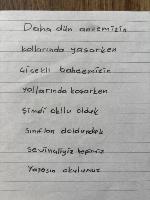 Daha dün annemizin
kollarında yaşarken
çiçekli bahçemizin
yollarında koşarken
şimdi okullu olduk
sınıfları doldurduk
sevinçliyiz hepimiz
Yaşasın okulumuz